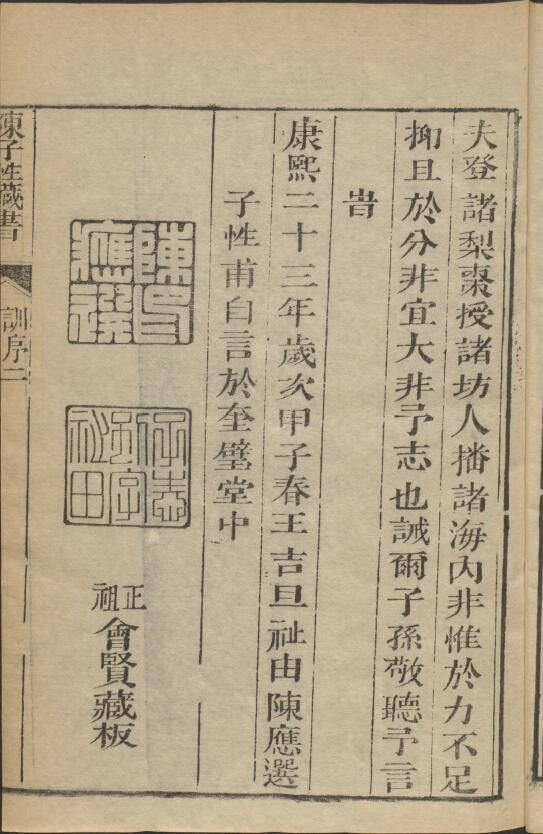 夫登諸梨棗授諸坊人播諸海內非惟於力不足
抑且於分非宜大非予志也誡爾子孫敬聽予言
旹
康熙二十三年歲次甲子春王吉旦祉由陳應選
子性甫白言於奎璧堂中
陳印
應選
正祖會賢藏板
陳子性藏書 訓序二